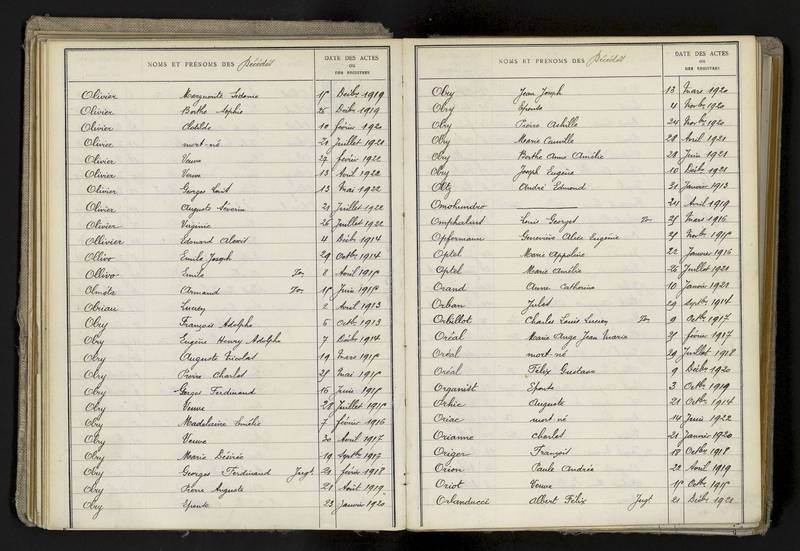 NOMS ET PRÉNOMS DES Décédés
DATE DES ACTES
OU
DES REGISTRES
Olivier Marguerite Sidonie 15 Décbre 1919
Olivier Berthe Sophie 26 Décbre 1919
Olivier Clotilde 10 février 1920
Olivier mort-né 21 Juillet 1920
Olivier Veuve 27 février 1922
Olivier Veuve 13 Avril 1922
Olivier Georges Louis 13 Mai 1922
Olivier Auguste Séverin 21 Juillet 1922
Olivier Virginie 26 Juillet 1922
Ollivier Edouard Alexis 4 Décbre 1914
Ollivo Emile Joseph 29 Octbre 1914
Ollivo Emile 8 Avril 1915
Armand 15 Juin 1915
Lucien 2 Avril 1913
Obry François Adolphe 6 Octbre 1913
Obry Eugène Henry Adolphe 7 Décbre 1914
Obry Auguste Nicolas 19 Mars 1915
Obry Pierre Charles 25 Mai 1915
Obry Georges Ferdinand 16 Juin 1915
Obry Veuve 28 Juillet 1915
Obry Madeleine Emélie 7 février 1916
Obry Veuve 20 Avril 1917
Obry Marie Désirée 19 Septbre 1917
Obry Georges Ferdinand Jugt 21 février 1918
Obry Pierre Auguste 21 Août 1919
Obry Epouse 23 Janvier 1920
NOMS ET PRÉNOMS DES Décédés
DATE DES ACTES
OU
DES REGISTRES
Obry Jean Joseph 13 Mars 1920
Obry Epouse 4 Novbre 1920
Obry Pierre Achille 24 Novbre 1920
Obry Marie Camille 28 Avril 1921
Obry Berthe Anne Amélie 28 Juin 1921
Obry Joseph Eugène 10 Décbre 1921
André Edmond 31 Janvier 1913
Omohundro 24 Avril 1919
Omphalius Louis Georges 25 Mars 1916
Opfermann Geneviève Alice Eugénie 25 Novbre 1915
Optel Marie Appoline 22 Janvier 1916
Optel Marie Amélie 26 Juillet 1921
Orand Anne Catherine 10 Janvier 1921
Orban Jules 29 Septbre 1914
Orbillot Charles Louis Lucien 9 Octbre 1917
Oréal Marie Ange Jean Marie 25 février 1917
Oréal mort-né 29 Juillet 1918
Oréal Félix Gustave 9 Décbre 1920
Organist Epouse 3 Octbre 1919
Orhie Auguste 21 Octbre 1914
Oriac mort-né 14 Juin 1922
Orianne Charles 21 Janvier 1920
Origer François 18 Octbre 1918
Orion Paule Andrée 22 Avril 1919
Oriot Veuve 15 Octbre 1915
Orlanducci Albert Félix Jugt 21 Décbre 1921